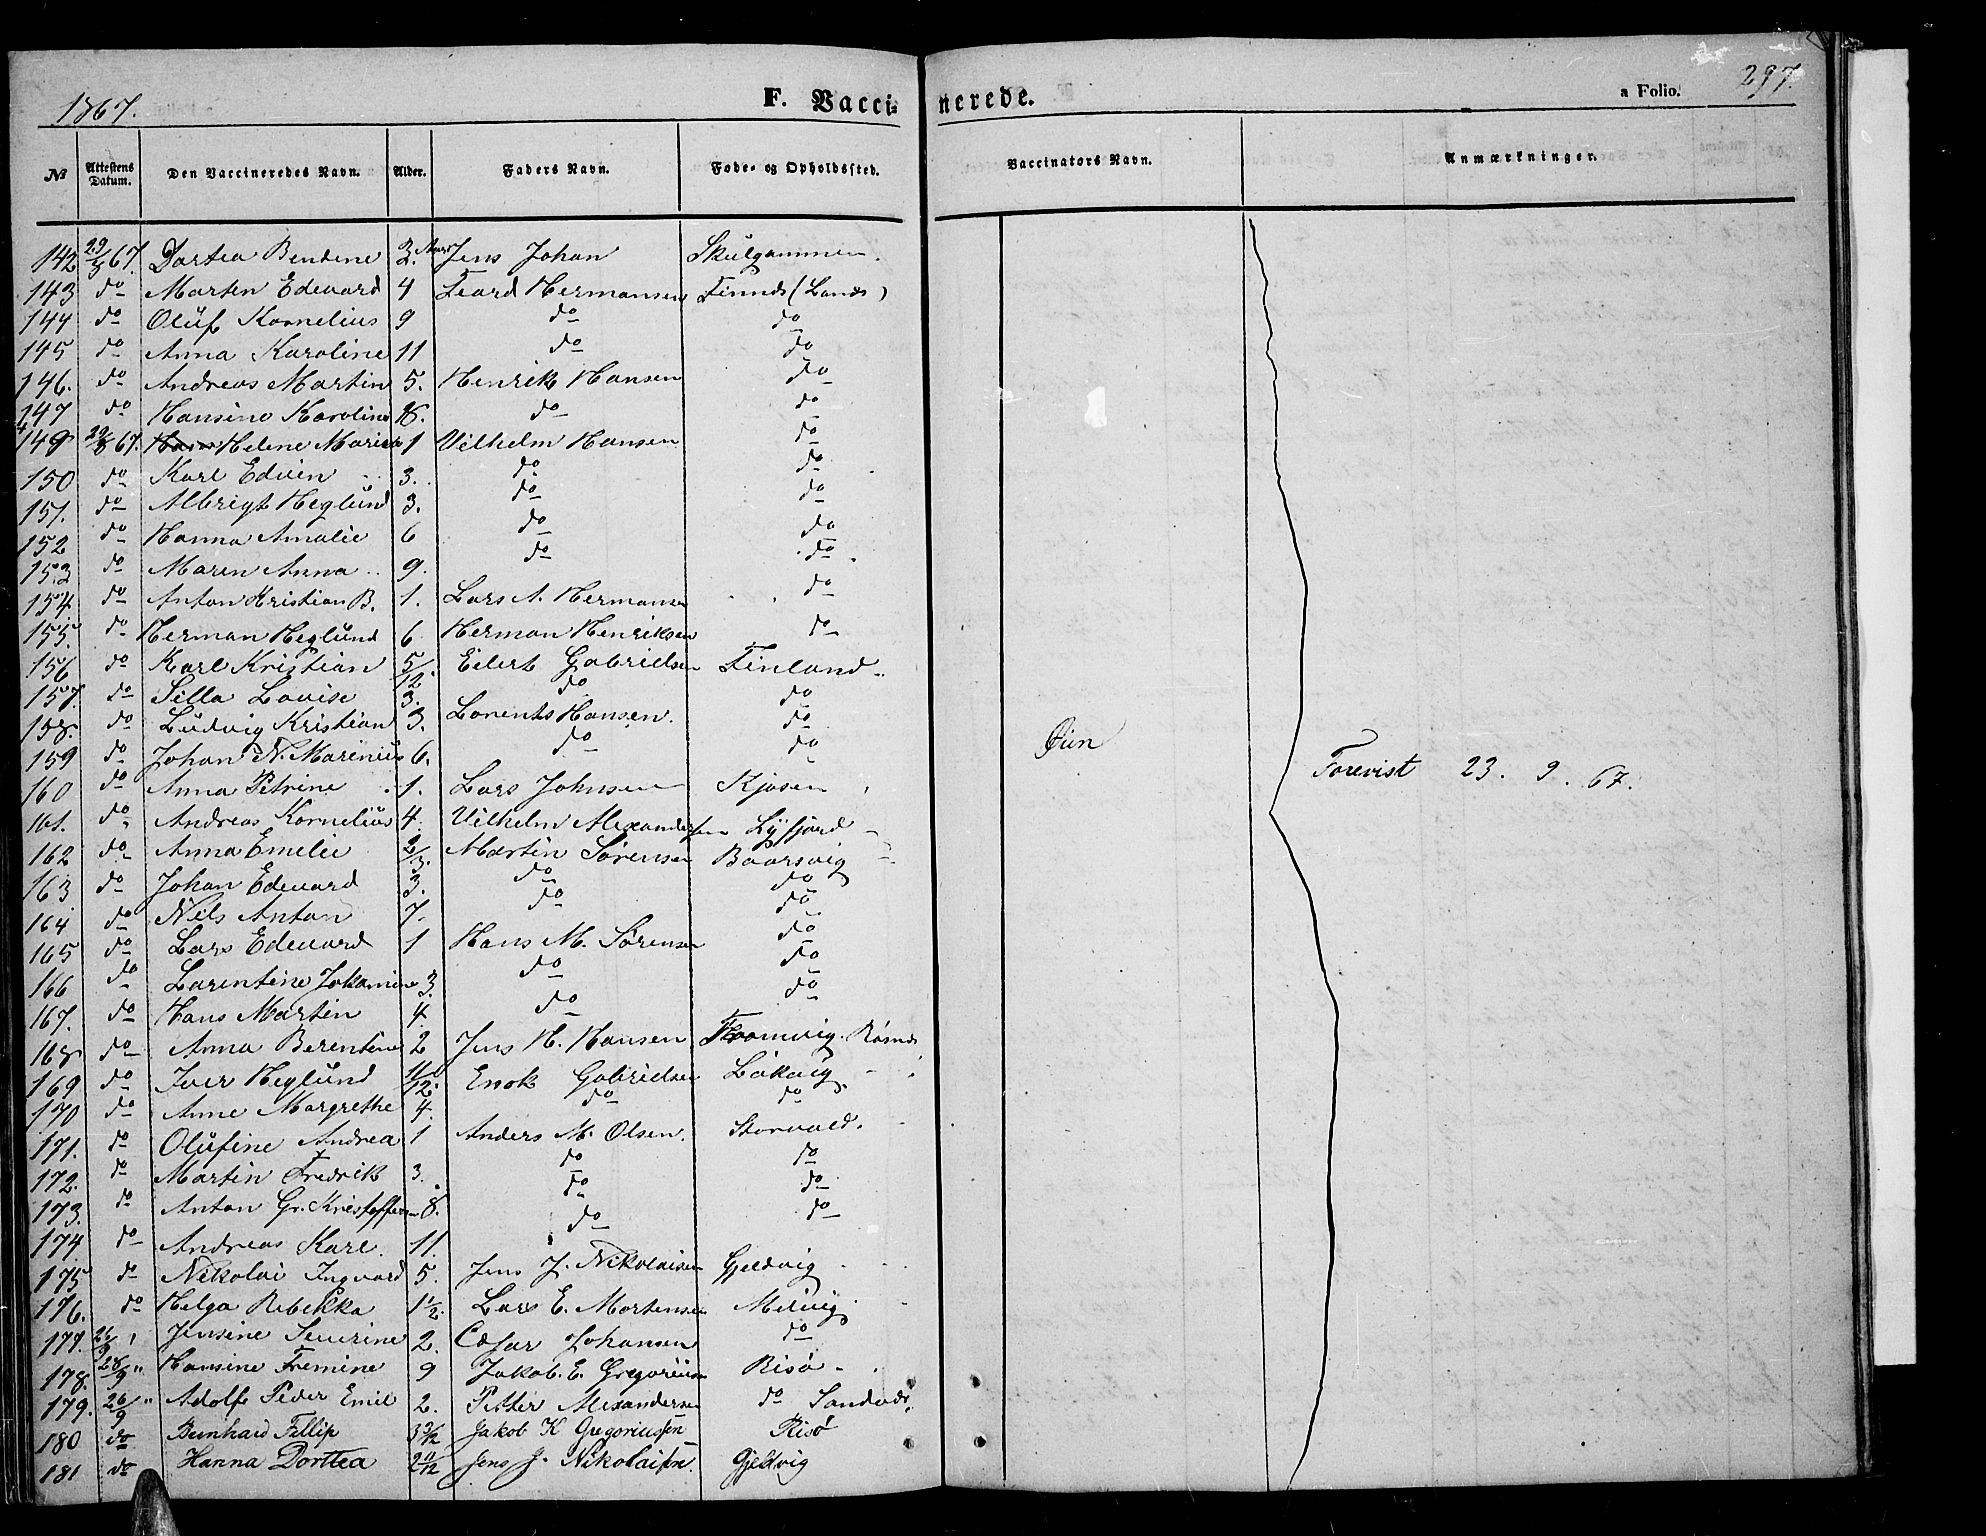 1867.
F. Vaccinerede.
a Folio. 297.
No Attestens Datum. Den Vaccineredes Navn. Alder. Faders Navn. Føde- og Opholdssted. Vaccinators Navn. Anmærkninger.
142 29/8 67. Dortea Bendene 3. Aar Jens Johan Skulgammen.
143 do Morten Edevard 4 Edvard Hermansen Finnds (Lands)
144 do Oluf Kornelius 9 do do
145 do Anna Karoline 11 do do
146. do Andreas Martin 5. Henrik Hansen do
147 do Hansine Karoline do do
149 29/8 67. Helene Marie 1 Vilhelm Hansen do
150 do Karl Edvin 3. do do
151. do Albrigt Heglund 3. do do
152 do Hanna Amalie 6 do do
153 do Maren Anna 9. do do
154 do Anton Kristian B. 1. Lars A. Hermansen do
155 do Herman Heglund 6 Herman Henriksen do
156 do Karl Kristian 5/12 Eilert Gabrielsen Finland
157. do Silla Lovise 3. do do
158. do Ludvig Kristian 3. Lorents Hansen. do
159 do Johan N. Marenius 6. do do
160 do Anna Petrine 1. Lars Johnsen Kjosen
161. do Andreas Kornelius 4. Vilhelm Alexandersen Lyfjord
162 do Anna Emelie 2/3. Martin Sørensen Baarsvig
163 do Johan Edevard 3. do do
164 do Nils Anton 7. do do
165 do Lars Edevard 1 Hans M. Sørensen do
166 do Larentine Johamine 3. do do
167. do Hans Martin 4 do do
168 do Anna Berentine 2 Jens H. Hansen
169 do Iver Heglund 11/12. Enok Gabrielsen Lakvig
170 do Anne Margrethe 4. do do
171. do Olufine Andrea 1 Anders M. Olsen. Storvold.
172. do Martin Fredrik 3. do do
173. do Anton Gr. Kristoffer 8. do do
174 do Andreas Karl. 11. do do
175 do Nikolai Ingvard 5. Jens J. Nikolaisen Gjeldvig
176. do Helga Rebekka 1 1/2. Lars E. Mortensen Melvig
177. 26/9 " Jensine Severine 2. Johansen do
178. 28/9 " Hansine Fremine 9 Jakob. E. Gregorius Risø
179. 26/9 " Adolf Peder Emil 2. Petter Alexandersen do
180 do Bernhard Fillip 3 Jakob K Gregoriussen Risø
181 do Hanna Dorttea 2 11/12 Jens J. Nikolaisen. Gjeldvig
Øien
Forevist 23. 9. 67.